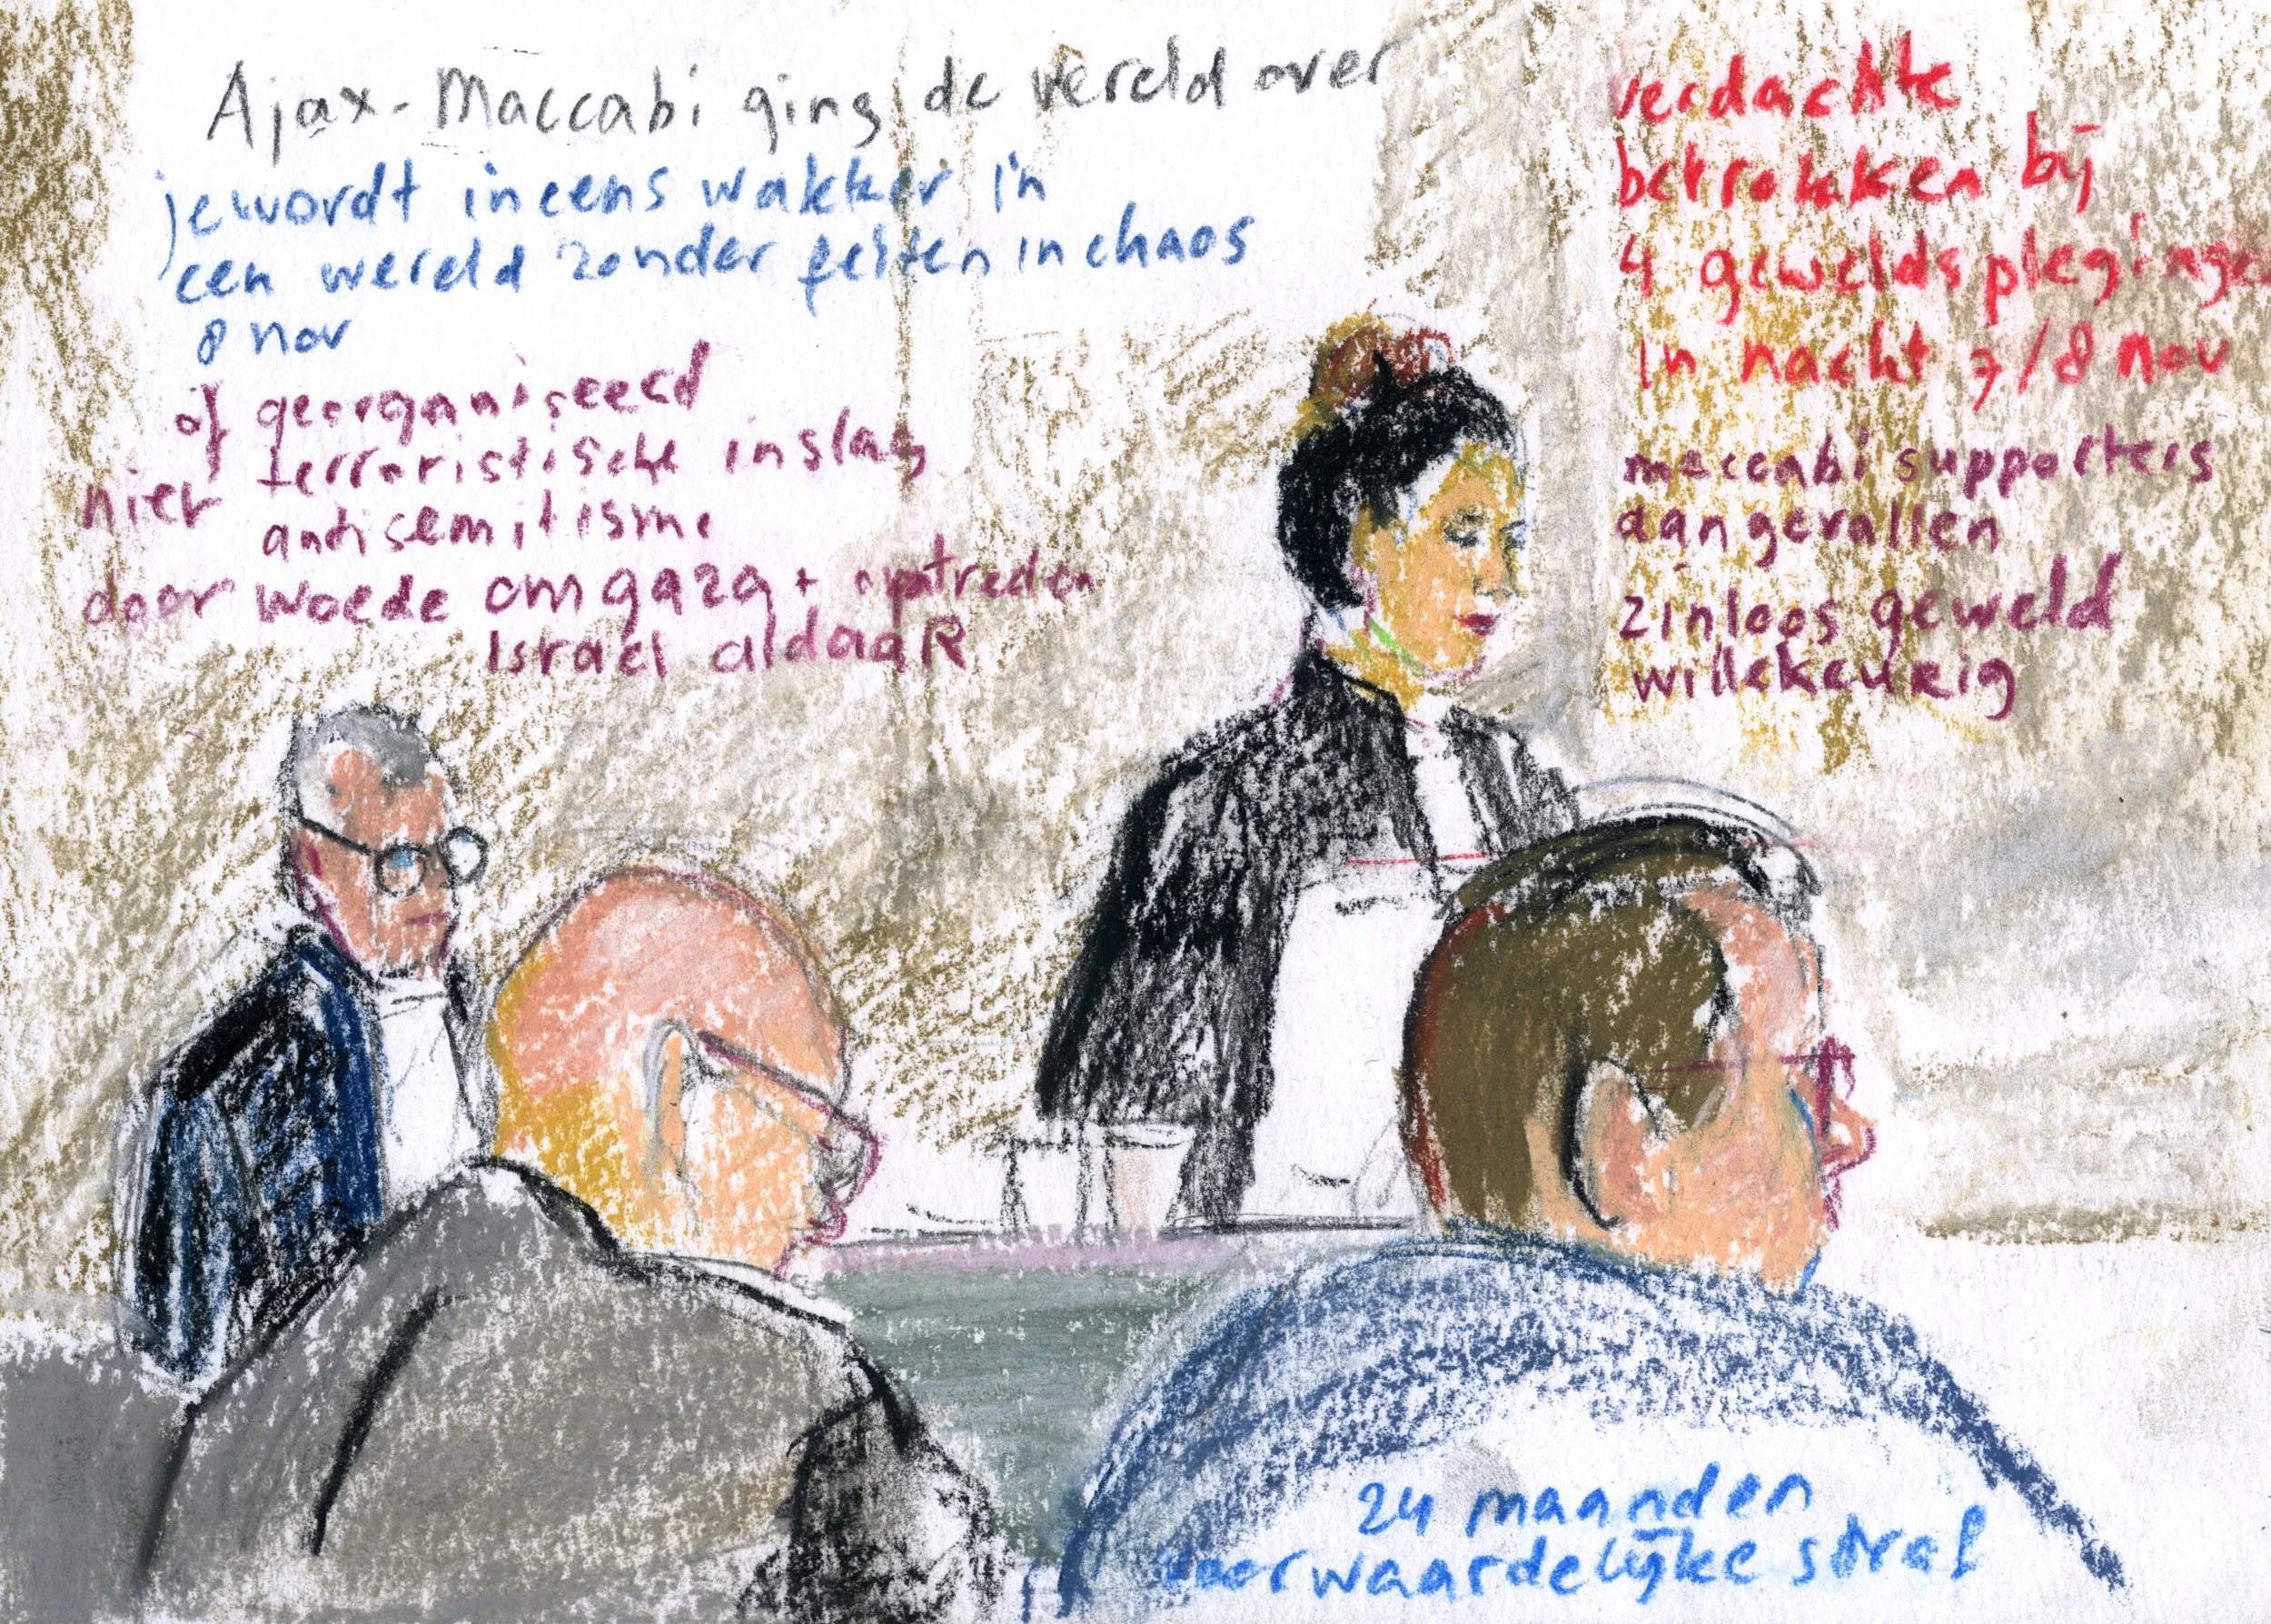 Ajax-Maccabi ging de wereld over
je wordt ineens wakker in
een wereld zonder feiten in chaos
8 nov
of georganiseerd
terroristische inslag
niet
antisemitisme
door woede om gaza + optreden
Israel aldaaR
verdachte
betrokken bij
4 geweldsplegingen
in nacht 7/8 nov
maccabi supporters
aangevallen
zinloos geweld
willekeurig
24 maanden
voorwaardelijke straf